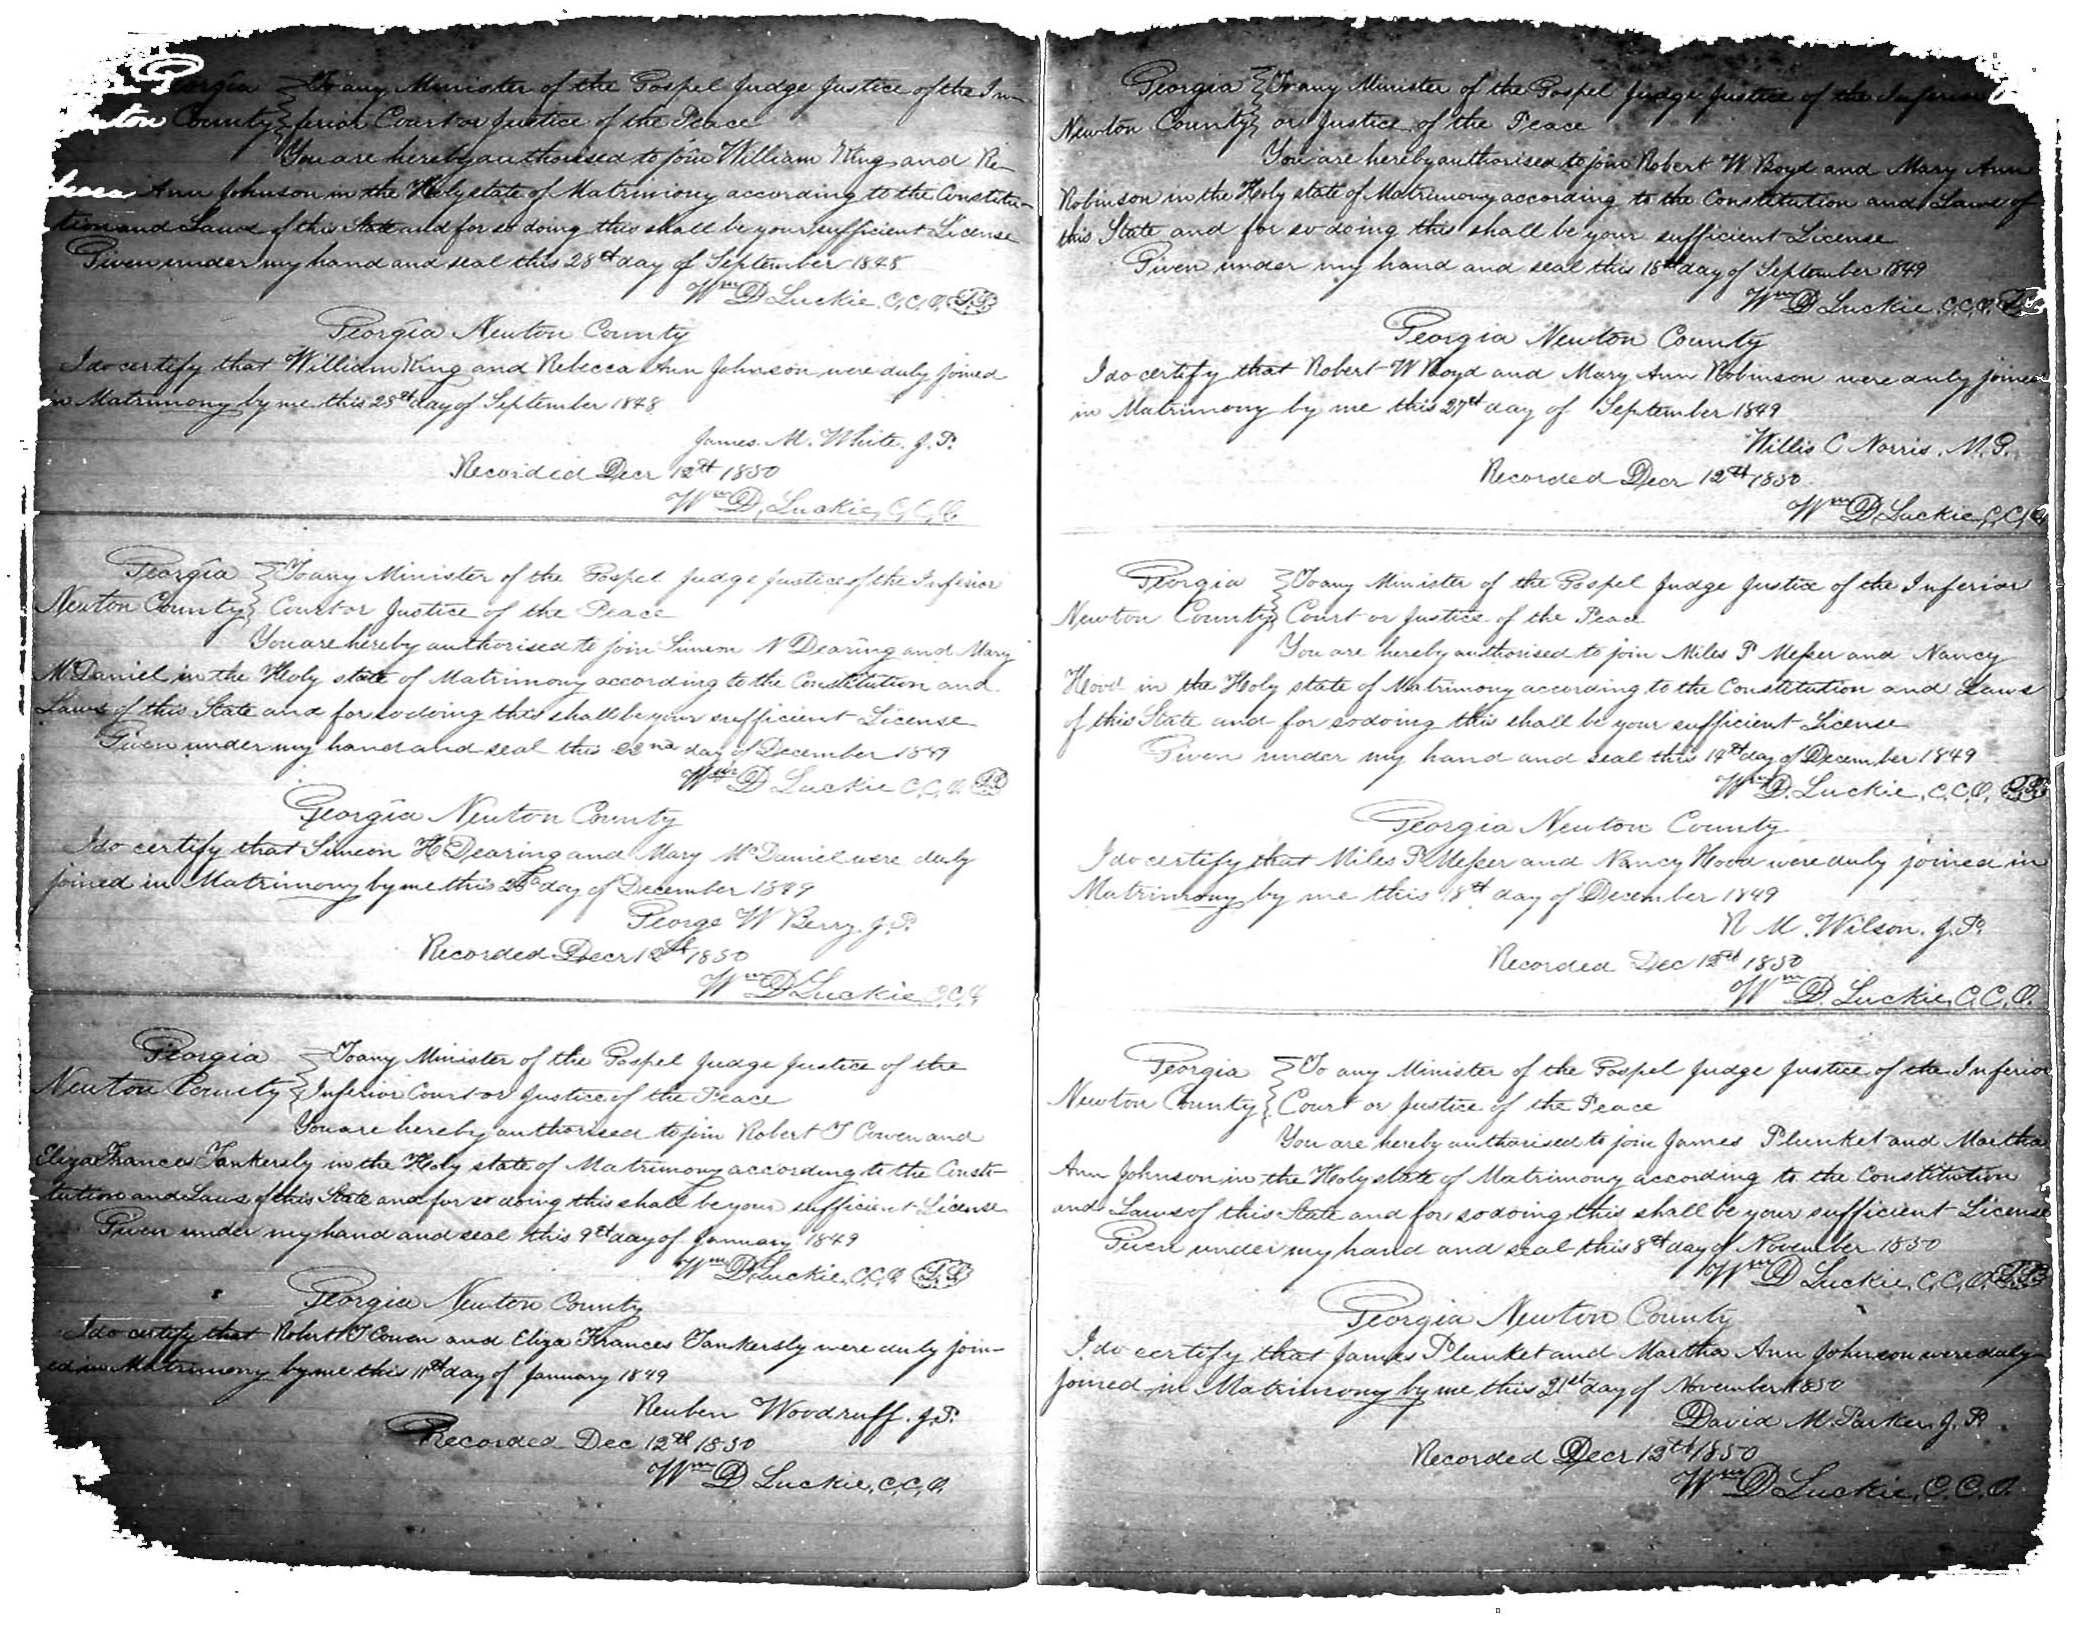 Georgia } To any Minister of the Gospel Judge Justice of the In-
Newton County } ferior Court or Justice of the Peace
You are hereby authorised to join William King and Re-
becca Ann Johnson in the Holy state of Matrimony according to the Constitu-
tion and Laws of this State and for so doing this shall be your sufficient License
Given under my hand and seal this 28th day of September 1848
Wm D Luckie C.C.O. L.S.
Georgia Newton County
I do certify that William King and Rebecca Ann Johnson were duly joined
in Matrimony by me this 28th day of September 1848
James. M. White. J.P.
Recorded Decr 12th 1850
Wm D, Luckie, C,C,O.
Georgia } To any Minister of the Gospel Judge Justice of the Inferior
Newton County } Court or Justice of the Peace
You are hereby authorised to join Simeon N Dearing and Mary
McDaniel in the Holy state of Matrimony according to the Constitution and
Laws of this State and for so doing this shall be your sufficient License
Given under my hand and seal this 22nd day of December 1849
Wm D Luckie C.C.O. L.S.
Georgia Newton County
I do certify that Simeon H Dearing and Mary McDaniel were duly
joined in Matrimony by me this day of December 1849
George W Berry. J.P.
Recorded Decr 12th 1850
Wm D Luckie C.C.O.
Georgia } To any Minister of the Gospel Judge Justice of the
Newton County } Inferior Court or Justice of the Peace
You are hereby authorised to join Robert T Cowen and
Eliza Frances Tankersly in the Holy state of Matrimony according to the Consti-
tution and Laws of this State and for so doing this shall be your sufficient License
Given under my hand and seal this 9th day of January 1849
Wm D, Luckie, C.C,O L.S.
Georgia Newton County
I do certify that Robert T Cowen and Eliza Frances Tankersly were duly join-
ed in Matrimony by me this 11th day of January 1849
Reuben Woodruff. J.P.
Recorded Dec 12th 1850
Wm D Luckie, C.C.O.
Georgia } To any Minister of the Gospel Judge Justice of the Inferior
Newton County } or Justice of the Peace
You are hereby authorised to join Robert W Boyd and Mary Ann
Robinson in the Holy state of Matrimony according to the Constitution and Laws of
this State and for so doing this shall be your sufficient License
Given under my hand and seal this 18th day of September 1849
Wm D Luckie C.C.O. L.S.
Georgia Newton County
I do certify that Robert W Boyd and Mary Ann Robinson were duly joined
in Matrimony by me this 27th day of September 1849
Willis C Norris. M.G.
Recorded Decr 12th 1850
Wm D, Luckie, C,C,O
Georgia } To any Minister of the Gospel Judge Justice of the Inferior
Newton County } Court or Justice of the Peace
You are hereby authorised to join Miles P Messer and Nancy
Hood in the Holy state of Matrimony according to the Constitution and Laws
of this State and for so doing this shall be your sufficient License
Given under my hand and seal this 14th day of December 1849
Wm D. Luckie, C.C.O. L.S.
Georgia Newton County
I do certify that Miles P Messer and Nancy Hood were duly joined in
Matrimony by me this 18th day of December 1849
R M. Wilson. J.P.
Recorded Dec 12th 1850
Wm D. Luckie, C,C,O.
Georgia } To any Minister of the Gospel Judge Justice of the Inferior
Newton County } Court or Justice of the Peace
You are hereby authorised to join James Plunket and Martha
Ann Johnson in the Holy state of Matrimony according to the Constitution
and Laws of this State and for so doing this shall be your sufficient License
Given under my hand and seal this 8th day of November 1850
Wm D Luckie, C,C,O. L.S.
Georgia Newton County
I do certify that James Plunket and Martha Ann Johnson were duly
joined in Matrimony by me this 21st day of November 1850
David M Parker, J.P.
Recorded Decr 12th 1850
Wm D Luckie, C.C.O.